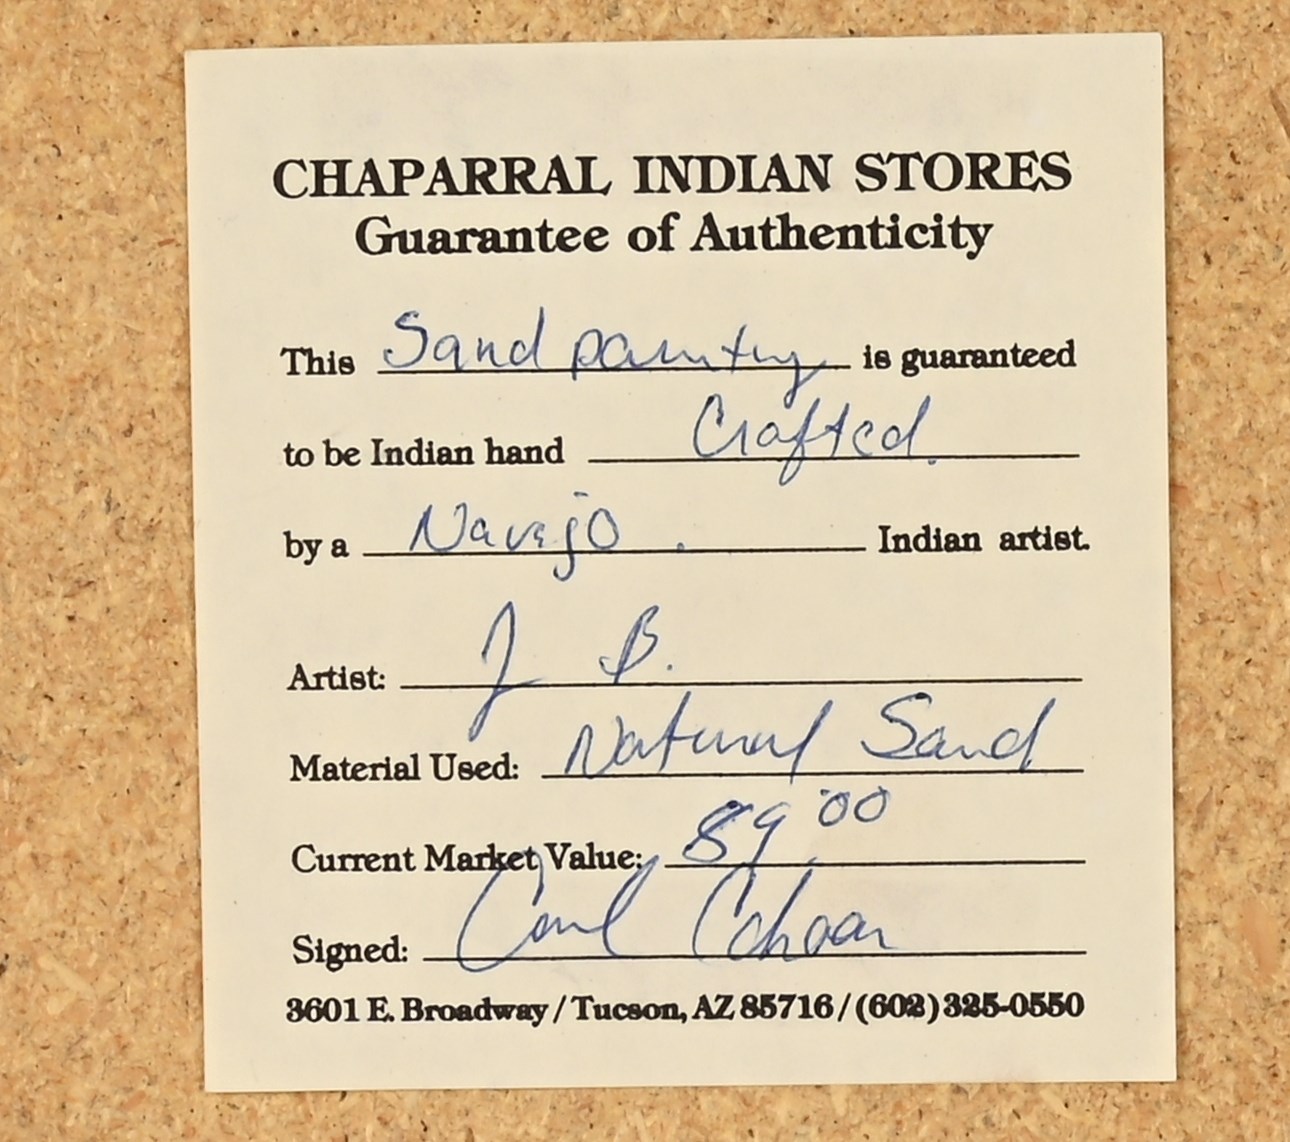 CHAPARRAL INDIAN STORES
Guarantee of Authenticity
This Sand painting is guaranteed
to be Indian hand Crafted.
by a Navajo . Indian artist.
Artist: J B.
Material Used: Natural Sand
Current Market Value: 89.00
Signed:
3601 E. Broadway / Tucson, AZ 85716 / (602) 325-0550